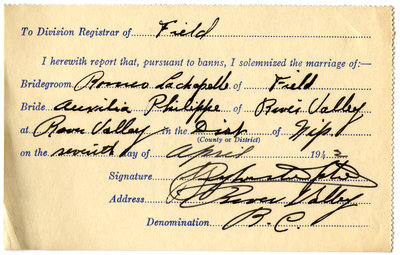 To Division Registrar of Field
I herewith report that, pursuant to banns, I solemnized the marriage of:—
Bridegroom Romeo Lachapelle of Field
Bride Auxilia Philippe of River Valley
at River Valley in the Dist of Nip.
(County or District)
on the seventh day of April 1943
Signature
Address River Valley
Denomination R.C.